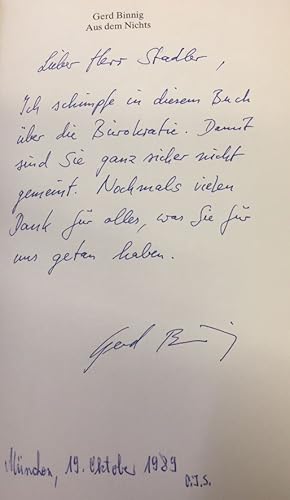 Gerd Binnig
Aus dem Nichts
Lieber Herr Stadler,
Ich schimpfe in diesem Buch
über die Bürokratie. Damit
sind Sie ganz sicher nicht
gemeint. Nochmals vielen
Dank für alles, was Sie für
uns getan haben.
Gerd Binnig
München, 19. Oktober 1989
D.J.S.